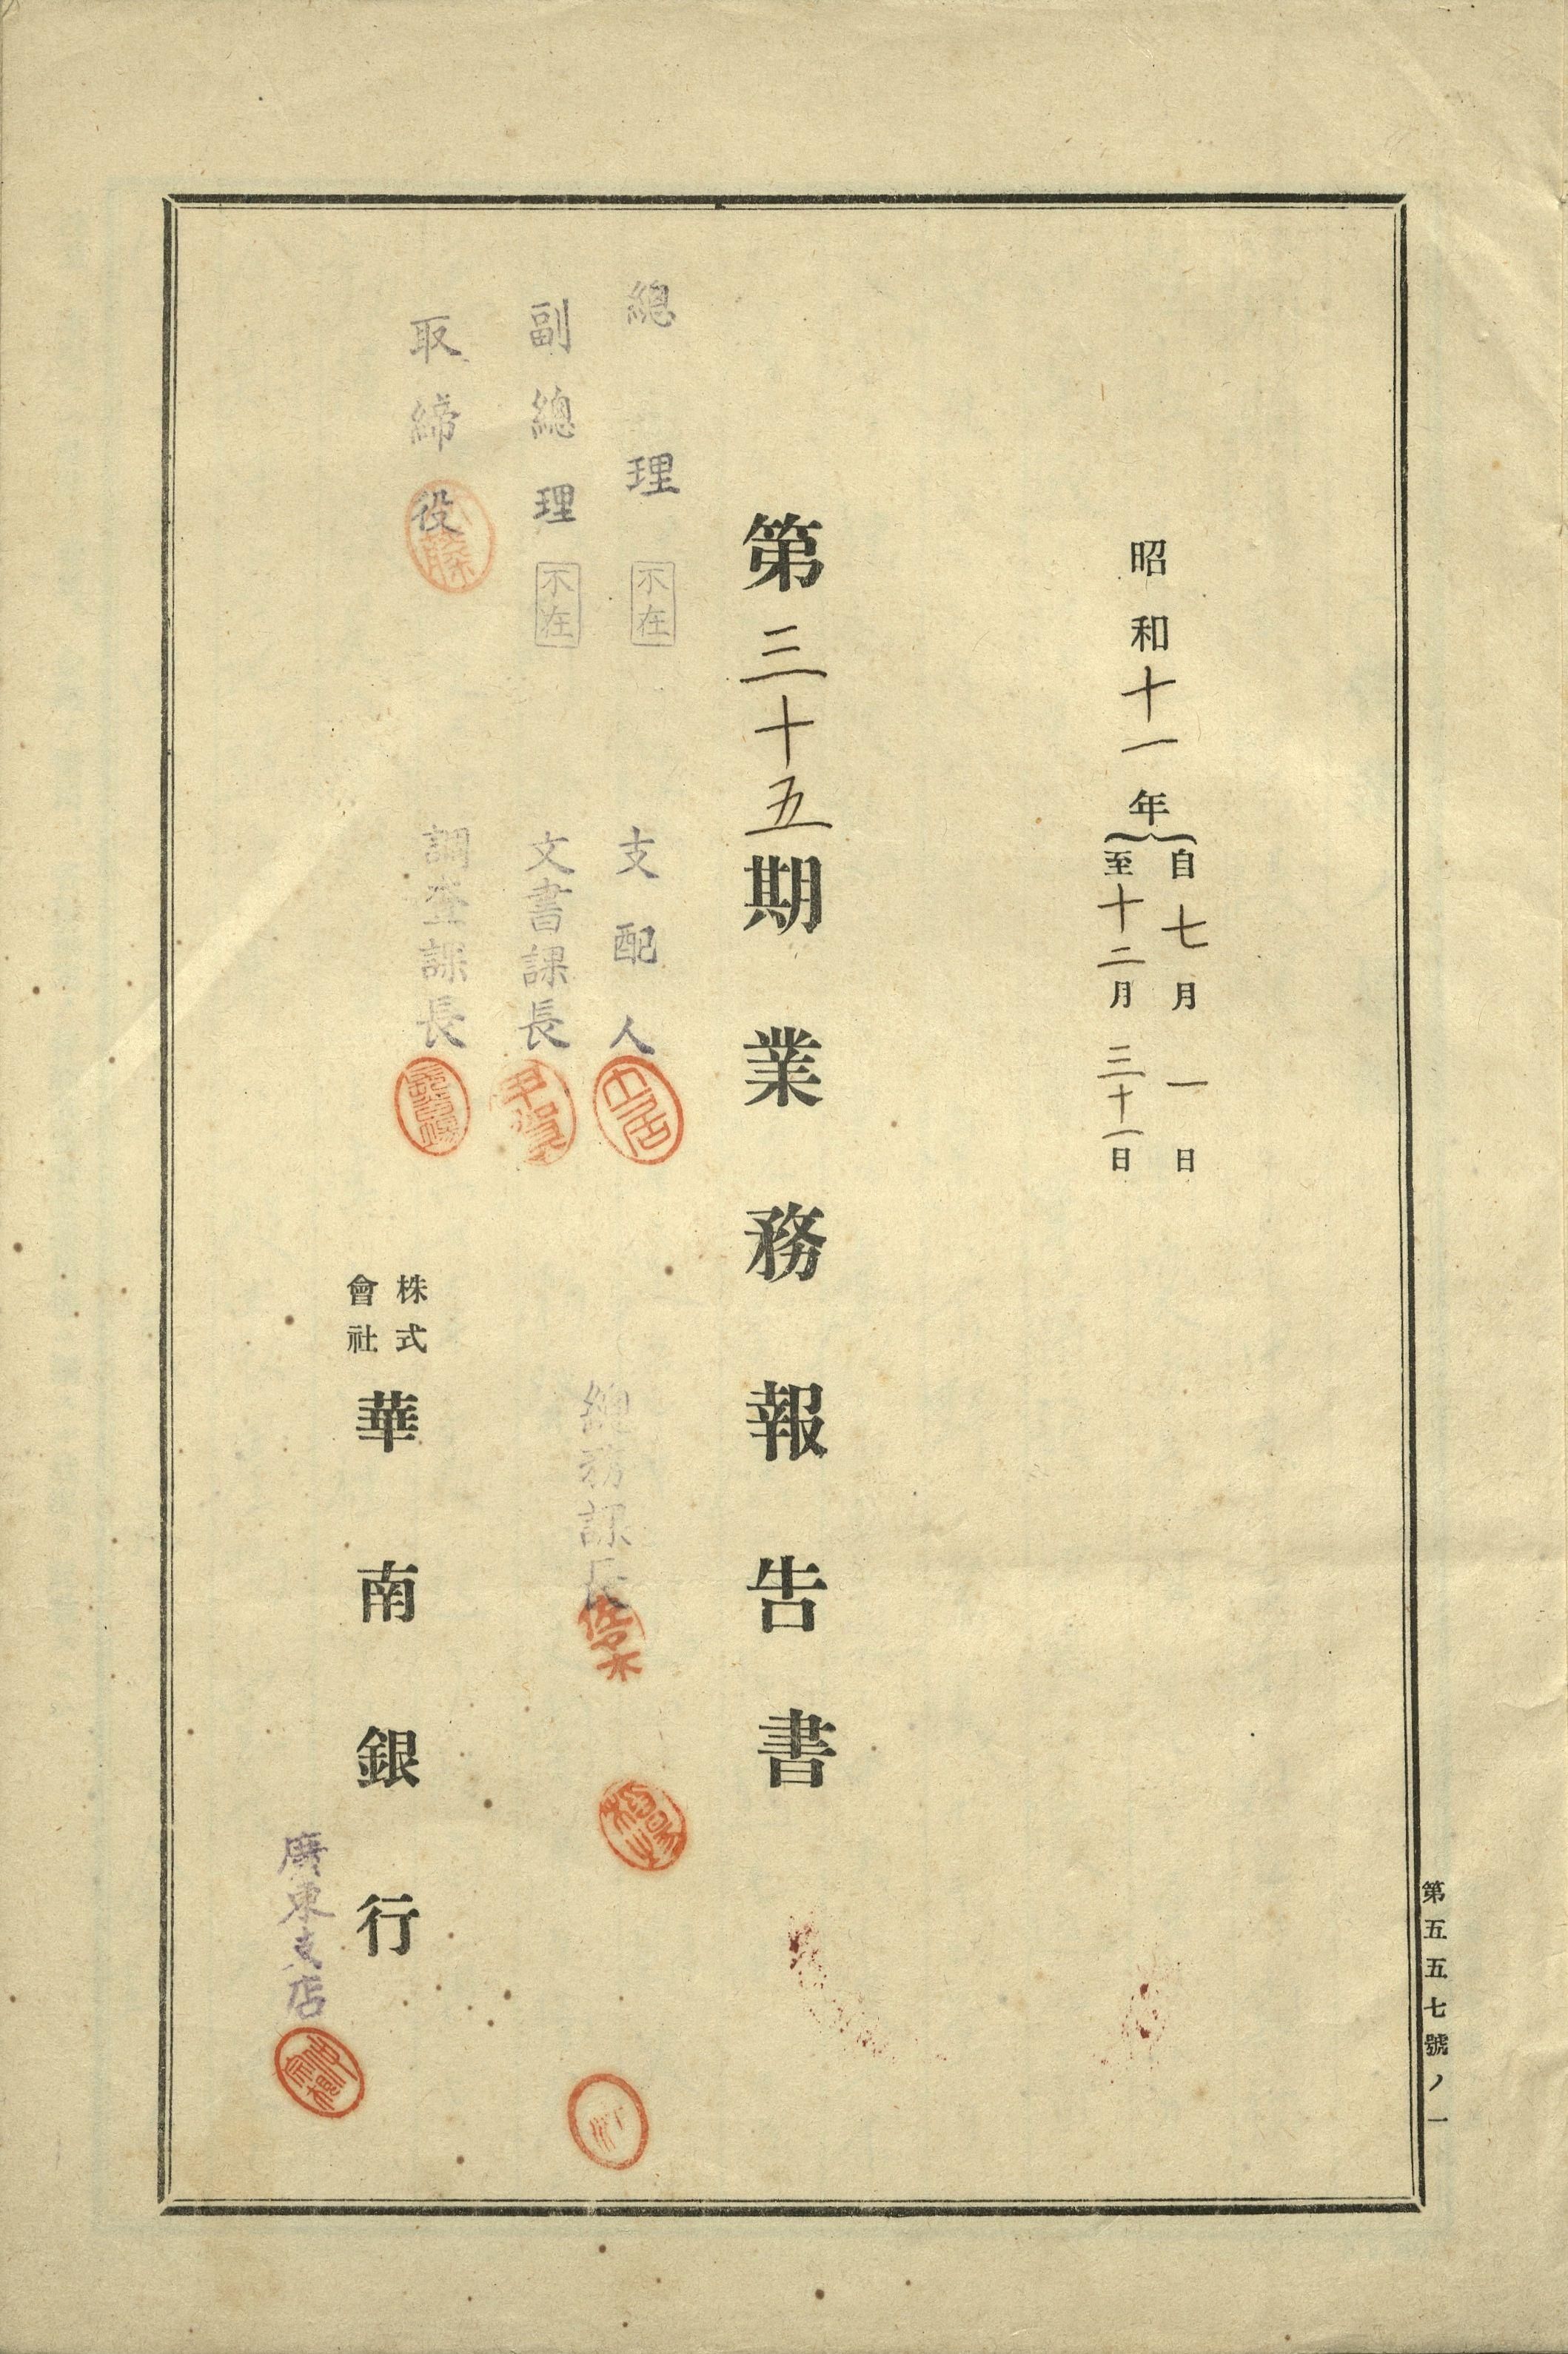 昭和十一年
自七月一日
至十二月三十一日
第三十五期業務報告書
總理 不在
副總理 不在
取締役
支配人
文書課長
調査課長
總務課長
佐々木
株式
會社
華南銀行
廣東支店
第五五七號ノ一